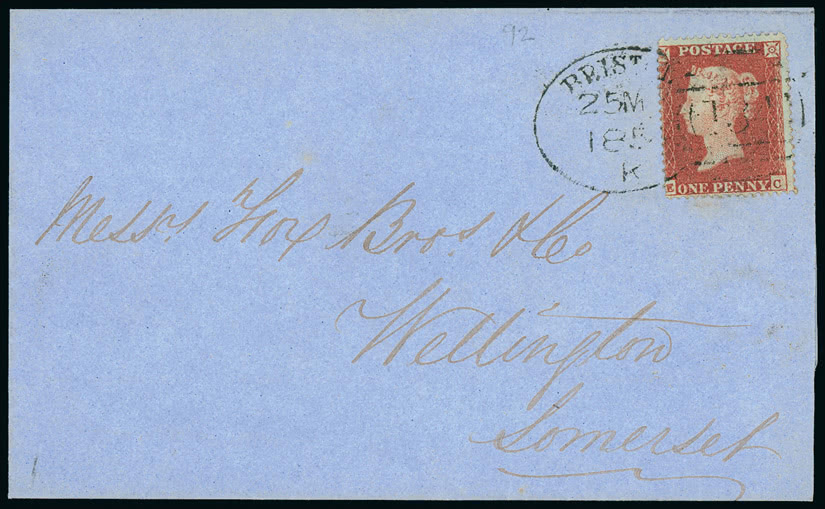 92
BRIST
25 M
185
K
POSTAGE
134
ONE PENNY C
Messrs Fox Bros. & Co
Wellington
Somerset